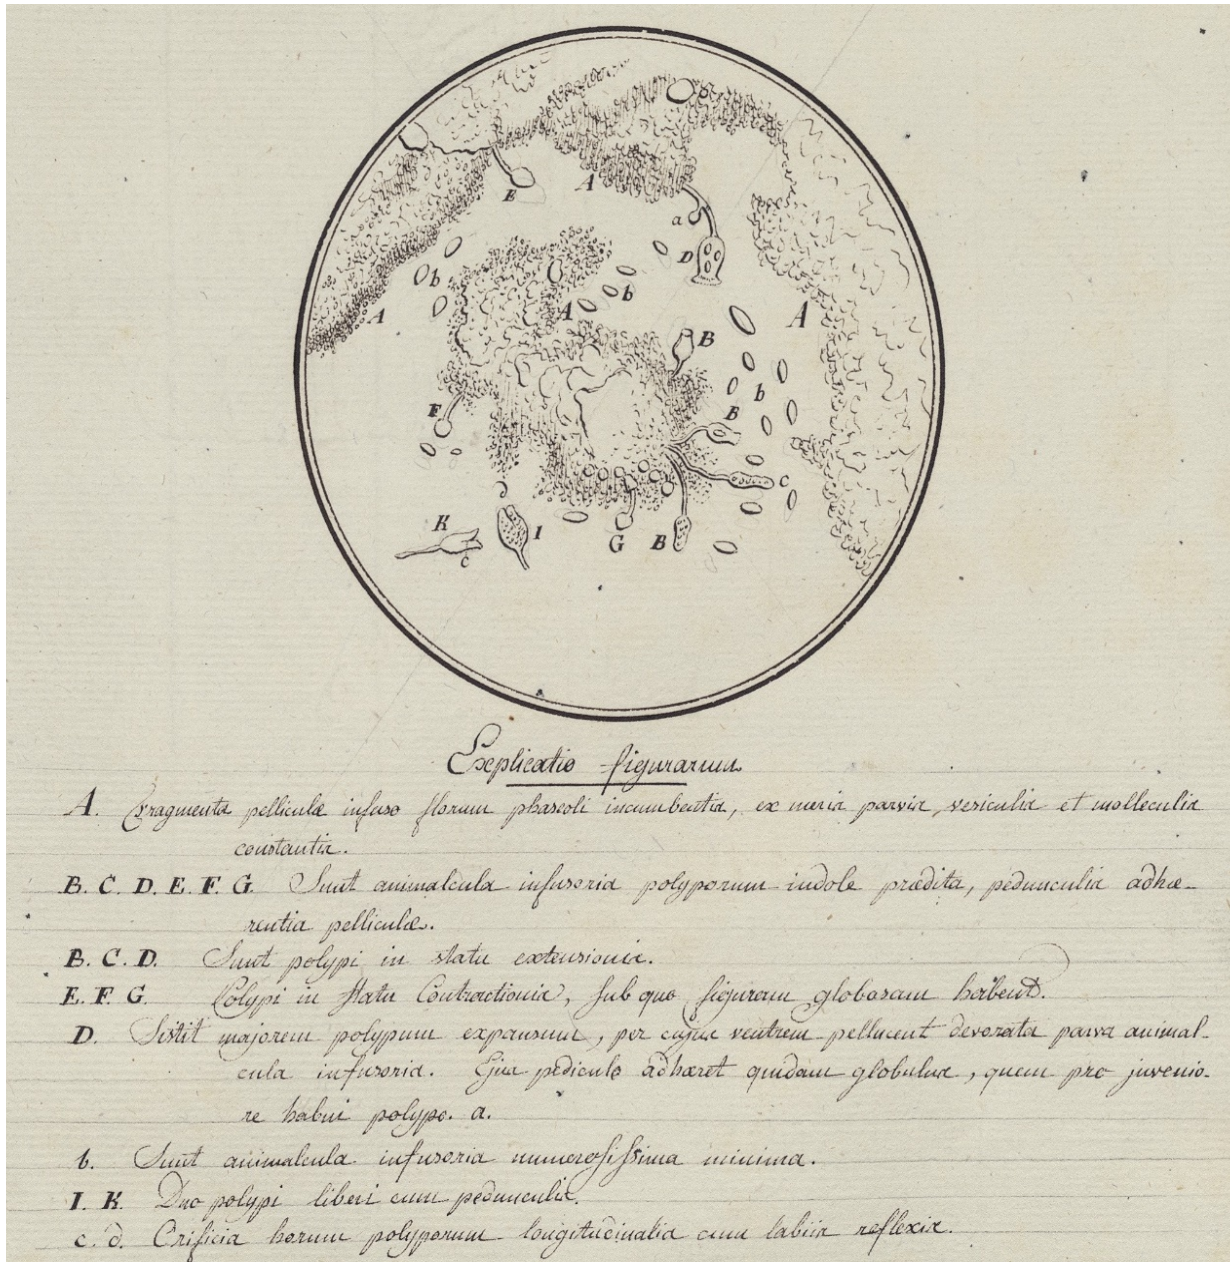 E
A
a
D
b
A
A
b
A
B
F
b
B
c
d
K
I
G
B
c
Explicatio figurarum
A. Fragmenta pelliculæ infuso florum phaseoli incumbentia, ex meris parvis, vesiculis et molleculis
constantia.
B. C. D. E. F. G. Sunt animalcula infusoria polyporum indole prædita, pedunculis adhæ-
rentia pelliculæ.
B. C. D. Sunt polypi in statu extensionis.
E. F. G. Polypi in statu Contractionis, sub quo figuram globosam habent.
D. Sistit majorem polypum expansum, per cujus ventrem pellucent devorata parva animal-
cula infusoria. Ejus pediculo adhæret quidam globulus, quem pro junio-
re habui polypo. a.
b. Sunt animalcula infusoria numerosissima minima.
I. K. Duo polypi liberi cum pedunculis.
c. d. Orificia horum polyporum longitudinalia cum labiis reflexis.